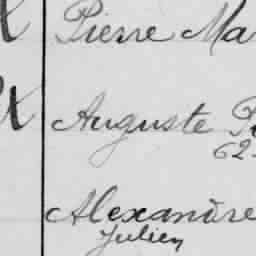 Pierre Ma
Auguste
62
Alexandre
Julien